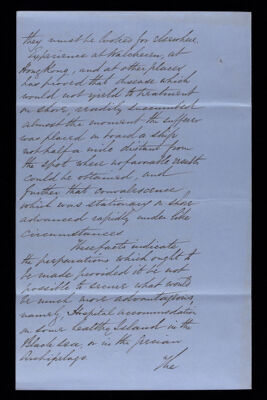 they must be looked for elsewhere.
Experience at Walcheren, at
Hong Kong, and at other places
has proved that disease which
would not yield to treatment
on shore, readily succumbed
almost the moment the sufferer
was placed on board a ship
not half a mile distant from
the spot where no favorable result
could be obtained, and
further that convalescence,
which was stationary on shore
advanced rapidly under like
circumstances
These facts indicate
the preparations which ought to
be made provided it be not
possible to secure what would
be much more advantageous,
namely, Hospital accommodation
on some healthy Island in the
Black Sea, or in the Grecian
Archipelago.
The